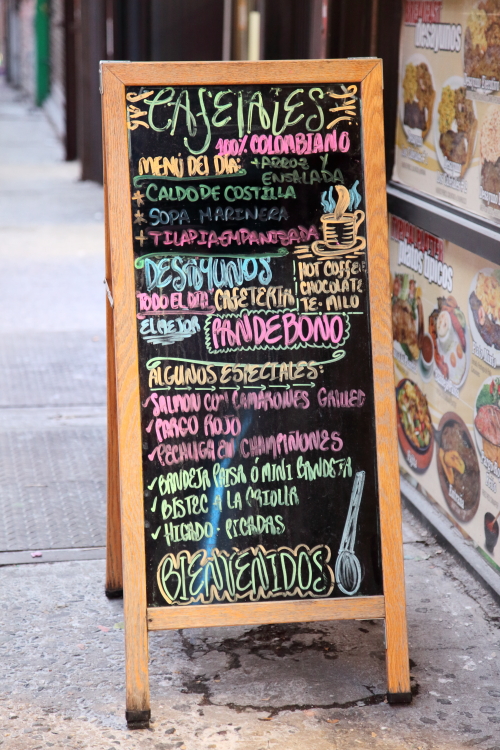 CAFETALES
100% COLOMBIANO
MENÚ DEL DÍA: + ARROZ Y ENSALADA
* CALDO DE COSTILLA
* SOPA MARINERA
* TILAPIA EMPANISADA
DESAYUNOS
TODO EL DIA. CAFETERIA
HOT COFFEE
CHOCOLATE
TE · MILO
EL MEJOR PANDEBONO
ALGUNOS ESPECIALES:
✓ SALMON CON CAMARONES GRILLED
✓ PARGO ROJO
✓ PECHUGA EN CHAMPIÑONES
✓ BANDEJA PAISA Ó MINI BANDEJA
✓ BISTEC A LA CRIOLLA
✓ HIGADO · PICADAS
BIENVENIDOS
BREAKFAST
Desayunos